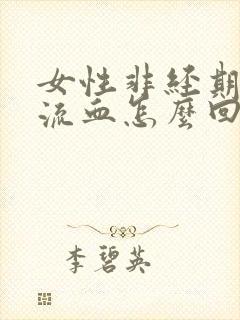 女性非经期
流血怎麼回
李碧英